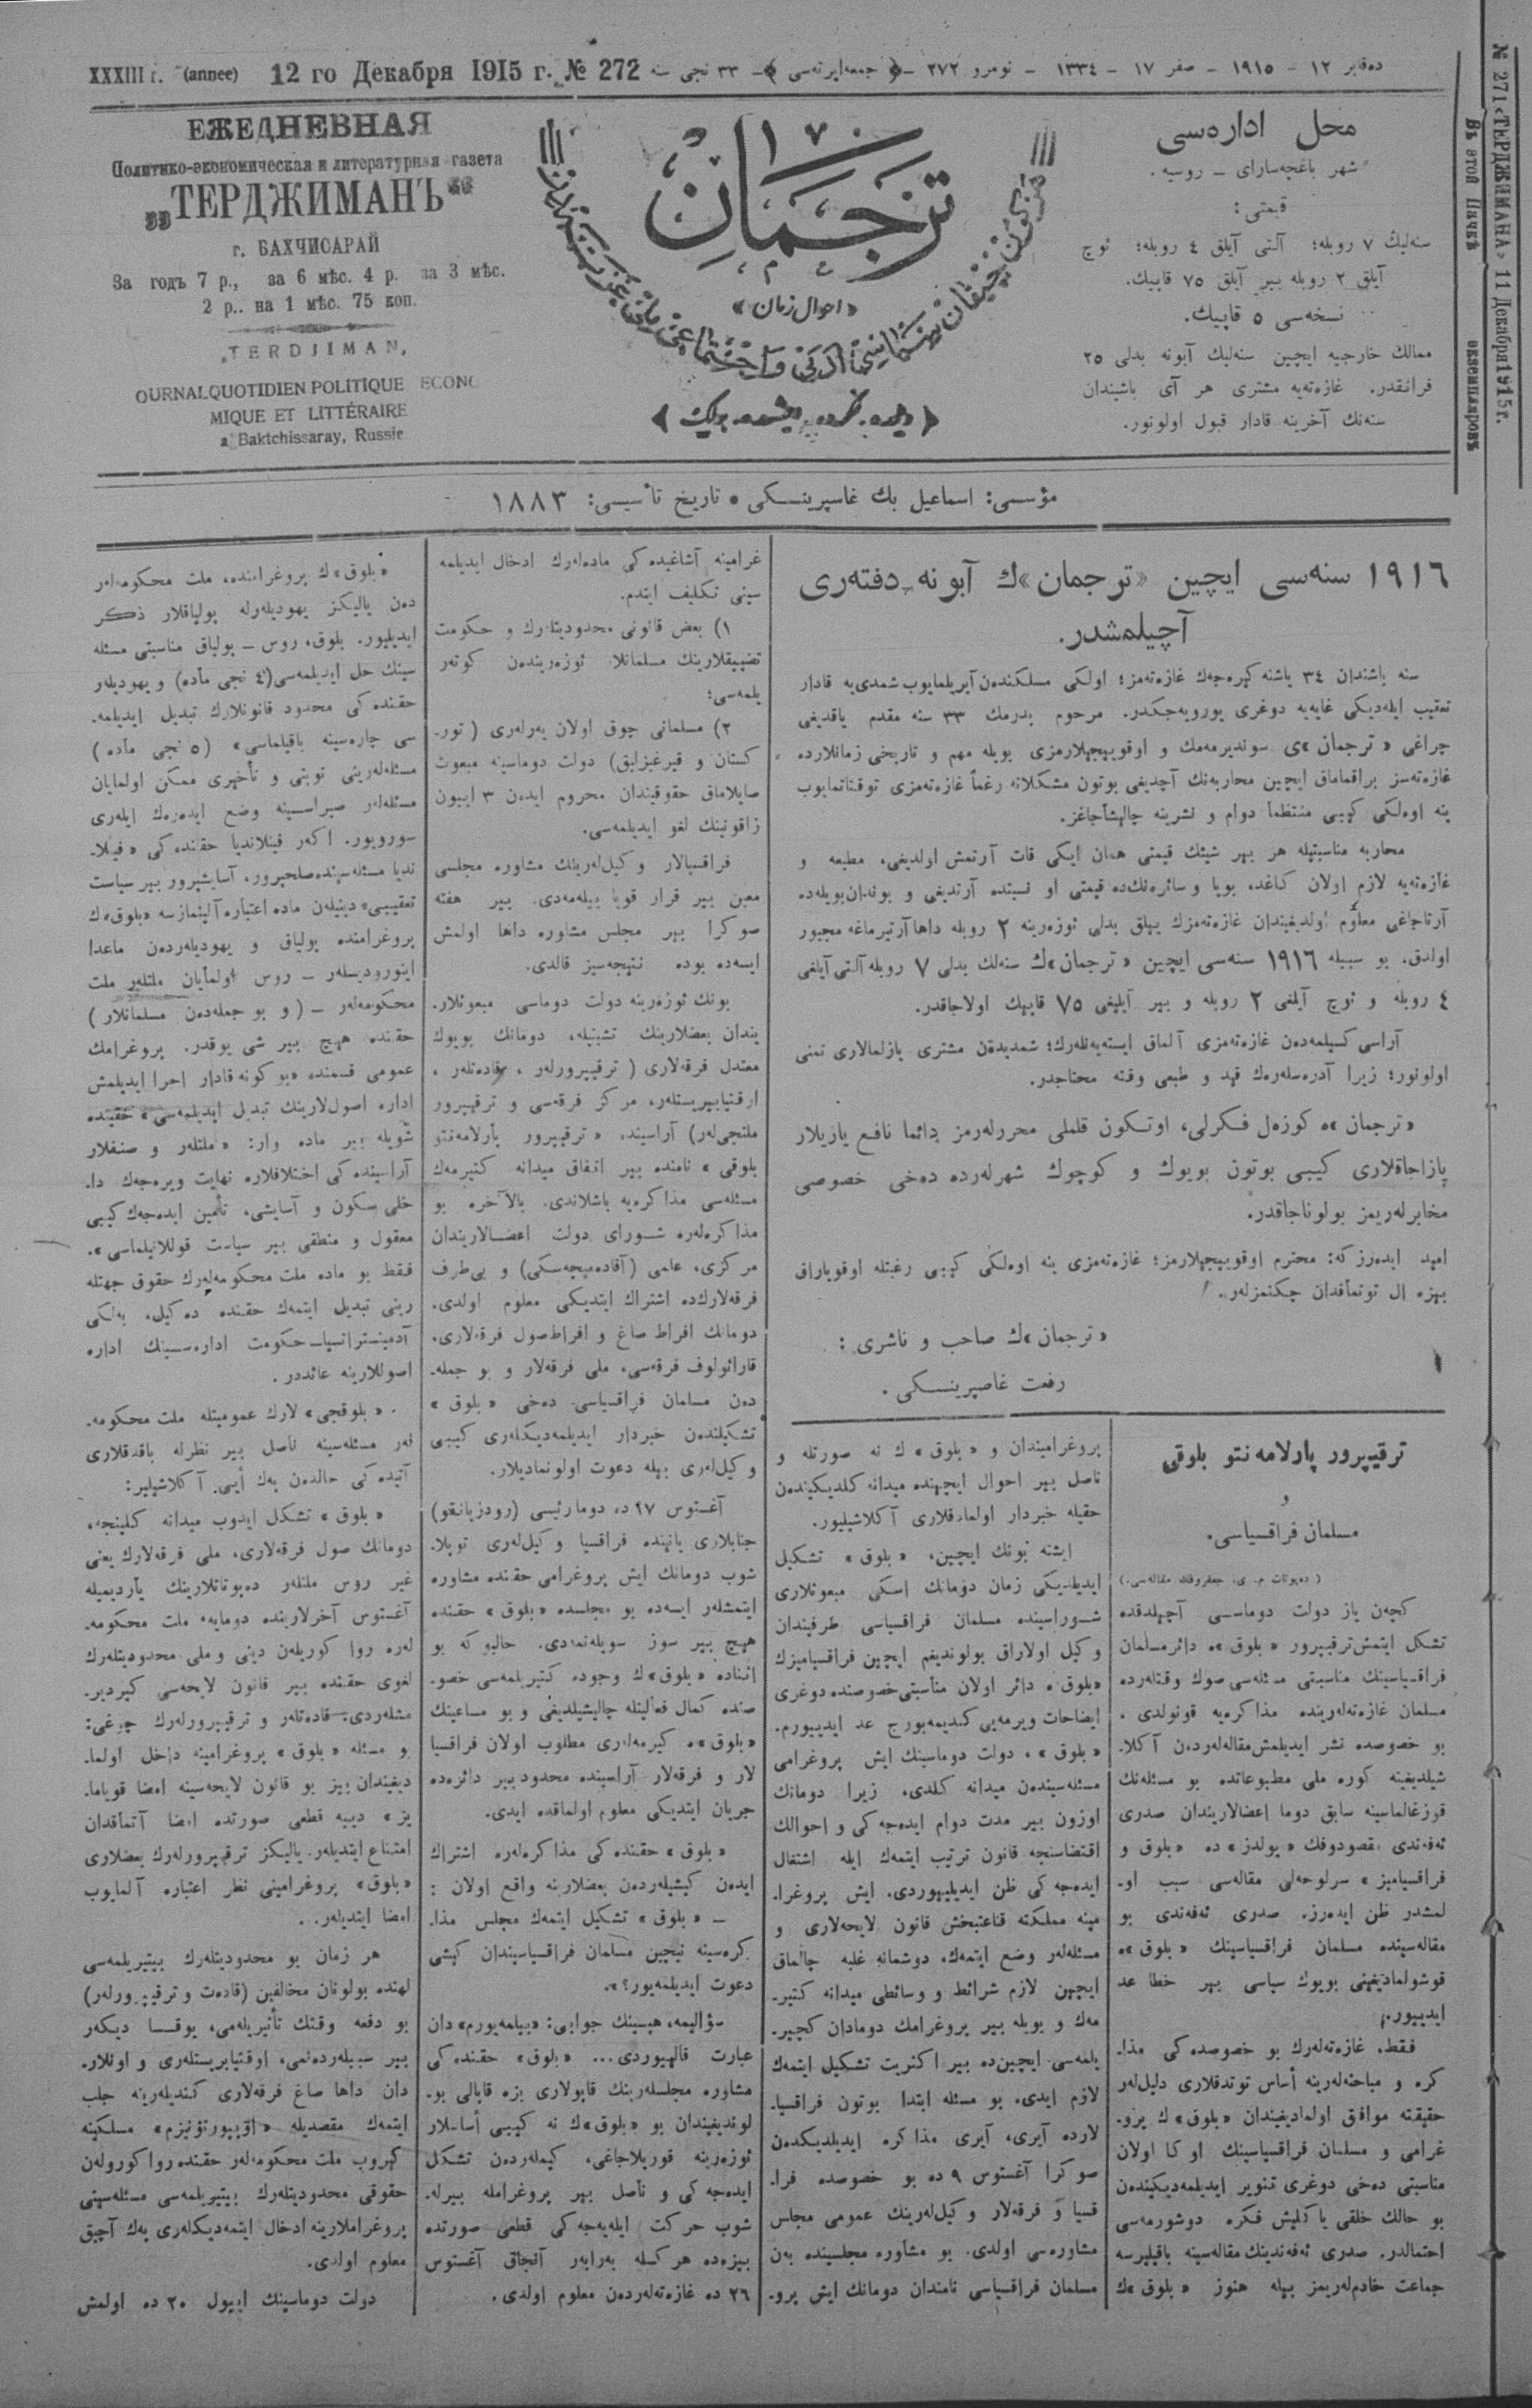 XXXIII г. (annee) 12 го Декабря 1915 г. № 272
دەقابر ١٢ – ١٩١٥ – صفر ١٧ – ١٣٣٤ – نومرو ٢٧٢ –﴿ جمعه‌ایرته‌سی ﴾– ٣٣ نجی سنه
№ 271 «ТЕРДЖИМАНА» 11 Декабря 1915 г.
Въ этой пачкѣ экземпляровъ
ЕЖЕДНЕВНАЯ
Политико-экономическая и литературная газета
„ТЕРДЖИМАНЪ“
г. БАХЧИСАРАЙ
За годъ 7 р., за 6 мѣс. 4 р. за 3 мѣс.
2 р.. на 1 мѣс. 75 коп.
„TERDJIMAN„
OURNAL QUOTIDIEN POLITIQUE ECONO
MIQUE ET LITTÉRAIRE
a Baktchissaray, Russie
ترجمان
«احوال زمان»
﴿ دیلده، فکرده، ایشده، بیرلیك ﴾
محل اداره‌سی
شهر باغچه‌سارای – روسیه.
قیمتی:
سنه‌لیك ٧ روبله؛ آلتی آیلق ٤ روبله؛ ئوچ
آیلق ٢ روبله بیر آیلق ٧٥ قاپیك.
نسخه‌سی ٥ قاپیك.
ممالك خارجیه ایچین سنه‌لیك آبونه بدلی ٢٥
فرانقدر. غازه‌ته‌یه مشتری هر آی باشیندان
سنه‌نك آخرینه قادار قبول اولونور.
مؤسسی: اسماعیل بك غاسپرینسكی • تاریخ تأسیسی: ١٨٨٣
١٩١٦ سنه‌سی ایچین «ترجمان»ك آبونه دفته‌ری
آچیلمشدر.
سنه باشندان ٣٤ یاشنه كیره‌جه‌ك غازه‌ته‌مز؛ اولكی مسلكندن آیریلمایوب شمدی‌یه قادار
تعقیب ایله‌دیكی غایه‌یه دوغری یورویه‌جكدر. مرحوم پدرمك ٣٣ سنه مقدم یاقدیغی
چراغی «ترجمان»ی سوندیرمه‌مك و اوقویبچیلارمزی بویله مهم و تاریخی زمانلارده
غازه‌ته‌سز براقماماق ایچین محاربه‌نك آچدیغی بوتون مشكلاته رغماً غازه‌ته‌مزی توقتاتمایوب
ینه اوه‌لكی كیبی منتظما دوام و نشرینه چالیشاجاغز.
محاربه مناسبتیله هر بیر شیئك قیمتی همان ایكی قات آرتمش اولدیغی، مطبعه و
غازه‌ته‌یه لازم اولان كاغد، بویا و سائره‌نك‌ده قیمتی او نسبتده آرتدیغی و بوندان‌بویله‌ده
آرتاجاغی معلوم اولدیغیندان غازه‌ته‌مزك ییللق بدلی ئوزه‌رینه ٢ روبله داها آرتیرماغه مجبور
اولدق. بو سببله ١٩١٦ سنه‌سی ایچین «ترجمان»ك سنه‌لك بدلی ٧ روبله آلتی آیلغی
٤ روبله و ئوچ آیلغی ٢ روبله و بیر آیلیغی ٧٥ قاپیك اولاجاقدر.
آراسی كسیلمه‌دن غازه‌ته‌مزی آلماق ایسته‌یه‌نله‌رك؛ شمدیدن مشتری یازلمالاری تمنی
اولونور؛ زیرا آدره‌سله‌رك قید و طبعی وقته محتاجدر.
«ترجمان»ه كوزه‌ل فكرلی، اوتكون قلملی محررله‌رمز دائما نافع یازیلار
یازاجاقلاری كیبی بوتون بویوك و كوچوك شهرله‌رده ده‌خی خصوصی
مخابرله‌ریمز بولوناجاقدر.
امید ایده‌رز كه: محترم اوقویبچیلارمز؛ غازه‌ته‌مزی ینه اوه‌لكی كیبی رغبتله اوقویاراق
بیزه ال توتمأقدان چكنمزله‌ر.
«ترجمان»ك صاحب و ناشری:
رفعت غاصپرینسكی.
ترقیپرور پارلامه‌نتو بلوقی
و
مسلمان فراقسیاسی.
(ده‌پوتات م. ی. جعفروفك مقاله‌سی.)
كچه‌ن یاز دولت دوماسی آچیلدقده
تشكل ایتمش ترقیپرور «بلوق»ه دائر مسلمان
فراقسیاسینك مناسبتی مسئله‌سی صوك وقتله‌رده
مسلمان غازه‌ته‌له‌رینده مذاكره‌یه قونولدی.
بو خصوصده نشر ایدیلمش مقاله‌له‌ردن آكلا-
شیلدیغینه كوره ملی مطبوعاتده بو مسئله‌نك
قوزغالماسینه سابق دوما اعضالاریندان صدری
ئه‌فه‌ندی مقصودوفك «یولدز» ده «بلوق و
فراقسیامیز» سرلوحه‌لی مقاله‌سی سبب او-
لمشدر ظن ایده‌رز. صدری ئه‌فه‌ندی بو
مقاله‌سینده مسلمان فراقسیاسینك «بلوق»ه
قوشولمادیغینی بویوك سیاسی بیر خطا عد
ایدییور.
فقط، غازه‌ته‌له‌رك بو خصوصده كی مذا-
كره و مباحثه‌له‌رینه أساس توتدقلاری دلیل‌له‌ر
حقیقته موافق اولمادیغیندان «بلوق»ك پرو-
غرامی و مسلمان فراقسیاسینك اوكا اولان
مناسبتی ده‌خی دوغری تنویر ایدیلمه‌دیكیندن
بو حالك خلقی یاكلیش فكره دوشورمه‌سی
احتمالدر. صدری ئه‌فه‌ندینك مقاله‌سینه باقیلیرسه
جماعت خادم‌له‌ریمز بیله هنوز «بلوق»ك
پروغرامیندان و «بلوق»ك نه صورتله و
ناصل بیر احوال ایچینده میدانه كلدیكیندن
حقیله خبردار اولمادقلاری آكلاشیلیور.
ایشته بونك ایچین، «بلوق» تشكیل
ایدیلدیكی زمان دومانك اسكی مبعوثلاری
شوراسینده مسلمان فراقسیاسی طرفیندان
وكیل اولاراق بولوندیغم ایچین فراقسیامیزك
«بلوق»ه دائر اولان مناسبتی خصوصنده دوغری
ایضاحات ویرمه‌یی كندیمه بورج عد ایدییورم.
«بلوق»، دولت دوماسینك ایش پروغرامی
مسئله‌سیندن میدانه كلدی، زیرا دومانك
اوزون بیر مدت دوام ایده‌جه‌كی و احوالك
اقتضاسنجه قانون ترتیب ایتمه‌ك ایله اشتغال
ایده‌جه‌كی ظن ایدیلیپوردی. ایش پروغرا-
مینه مملكته قناعتبخش قانون لایحه‌لاری و
مسئله‌له‌ر وضع ایتمه‌ك، دوشمانه غلبه چالماق
ایچین لازم شرائط و وسائطی میدانه كتیر-
مه‌ك و بویله بیر پروغرامك دومادان كچیر-
یلمه‌سی ایچین‌ده بیر اكثریت تشكیل ایتمه‌ك
لازم ایدی. بو مسئله ابتدا بوتون فراقسیا-
لارده آیری، آیری مذاكره ایدیلدیكدن
صوكرا آغستوس ٩ ده بو خصوصده فرا-
قسیا و فرقه‌لار وكیل‌له‌رینك عمومی مجلس
مشاوره‌سی اولدی. بو مشاوره مجلسینده به‌ن
مسلمان فراقسیاسی نامندان دومانك ایش پرو-
غرامینه آشاغیده‌كی ماده‌له‌رك ادخال ایدیلمه
سینی تكلیف ایتدم.
١) بعض قانونی محدودیتله‌رك و حكومت
تضییقلارینك مسلمانلار ئوزه‌ریندن كوته‌ر
یلمه‌سی؛
٢) مسلمانی چوق اولان یه‌رله‌ری (تور-
كستان و قیرغیزلیق) دولت دوماسینه مبعوث
صایلاماق حقوقیندان محروم ایدن ٣ اییون
زاقونینك لغو ایدیلمه‌سی.
فراقسیالار وكیل‌له‌رینك مشاوره مجلسی
معین بیر قرار قویا بیله‌مه‌دی. بیر هفته
صوكرا بیر مجلس مشاوره داها اولمش
ایسه‌ده بوده نتیجه‌سیز قالدی.
بونك ئوزه‌رینه دولت دوماسی مبعوثلار-
یندان بعضلارینك تشبثیله، دومانك بویوك
معتدل فرقه‌لاری (ترقیپرورله‌ر، قاده‌تله‌ر،
اوقتیابریستله‌ر، مركز فرقه‌سی و ترقیپرور
ملتجی‌له‌ر) آراسینده «ترقیپرور پارلامه‌نتو
بلوقی» نامنده بیر اتفاق میدانه كتیرمه‌ك
مسئله‌سی مذاكره‌یه باشلاندی. بالآخره بو
مذاكره‌له‌ره شورای دولت اعضالاریندان
مركزی، علمی (آقاده‌میچه‌سكی) و بی‌طرف
فرقه‌لارك‌ده اشتراك ایتدیكی معلوم اولدی.
دومانك افراط صاغ و افراط صول فرقه‌لاری،
قارائولوف فرقه‌سی، ملی فرقه‌لار و بو جمله-
دن مسلمان فراقسیاسی ده‌خی «بلوق»
تشكیلندن خبردار ایدیلمه‌دیكله‌ری كیبی
وكیل‌له‌ری بیله دعوت اولونمادیلار.
آغستوس ٢٧ ده دوما رئیسی (رودزیانقو)
جنابلاری یانینده فراقسیا وكیل‌له‌ری توپلا-
شوب دومانك ایش پروغرامی حقنده مشاوره
ایتمشله‌ر ایسه‌ده بو مجلسده «بلوق» حقنده
هیچ بیر سوز سویله‌نمه‌دی. حالبوكه بو
اثناده «بلوق»ك وجوده كتیریلمه‌سی خصو-
صنده كمال فعالیتله چالیشیلدیغی و بو مساعینك
«بلوق»ه كیرمه‌له‌ری مطلوب اولان فراقسیا
لار و فرقه‌لار آراسینده محدود بیر دائره‌ده
جریان ایتدیكی معلوم اولماقده ایدی.
«بلوق» حقنده‌كی مذاكره‌له‌ره اشتراك
ایدن كیشیله‌ردن بعضلارینه واقع اولان:
– «بلوق» تشكیل ایتمه‌ك مجلس مذا-
كره‌سینه نیچین مسلمان فراقسیاسیندان كیشی
دعوت ایدیلمه‌یور؟».
سؤالیمه، هپسینك جوابی: «بیلمه‌یورم» دان
عبارت قالیپوردی... «بلوق» حقنده‌كی
مشاوره مجلسله‌رینك قاپولاری بزه قاپالی بو-
لوندیغیندان بو «بلوق»ك نه كیبی أساسلار
ئوزه‌رینه قوریلاجاغی، كیمله‌ردن تشكل
ایده‌جه‌كی و ناصل بیر پروغرامله بیرله-
شوب حركت ایله‌یه‌جه‌كی قطعی صورتده
بیزه‌ده هركسله به‌رابه‌ر آنجاق آغستوس
٢٦ ده غازه‌ته‌له‌ردن معلوم اولدی.
«بلوق»ك پروغرامنده، ملت محكومه‌له‌ر
دن یالیكز یهودیله‌رله پولیاقلار ذكر
ایدیلیور. بلوق، روس – پولیاق مناسبتی مسئله
سینك حل ایدیلمه‌سی (٤ نجی ماده) و یهودیله‌ر
حقنده‌كی محدود قانونلارك تبدیل ایدیلمه-
سی چاره‌سینه باقیلماسی» (٥ نجی ماده)
مسئله‌له‌رینی نوبتی و تأخیری ممكن اولمایان
مسئله‌له‌ر صیراسینه وضع ایده‌ره‌ك ایله‌ری
سورویور. اكه‌ر فینلاندیا حقنده‌كی «فینلا-
ندیا مسئله‌سینده صلحپرور، آسایشپرور بیر سیاست
تعقیبی» دینیله‌ن ماده اعتباره آلینمازسه «بلوق»ك
پروغرامنده پولیاق و یهودیله‌ردن ماعدا
اینورودیسله‌ر – روس اولمأیان ملتله‌ر ملت
محكومه‌له‌ر – (و بو جمله‌دن مسلمانلار)
حقنده هیچ بیر شی یوقدر. پروغرامك
عمومی قسمنده «بو كونه قادار اجرا ایدیلمش
اداره اصول‌لارینك تبدیل ایدیلمه‌سی» حقینده
شویله بیر ماده وار: «ملتله‌ر و صنفلار
آراسینده‌كی اختلافلاره نهایت ویره‌جه‌ك دا-
خلی سكون و آسایشی، تأمین ایده‌جه‌ك كیبی
معقول و منطقی بیر سیاست قوللانیلماسی».
فقط بو ماده ملت محكومه‌له‌رك حقوق جهتله
رینی تبدیل ایتمه‌ك حقنده ده‌كیل، به‌لكی
آدمینیستراتسیا–حكومت اداره‌سینك اداره
اصوللارینه عائددر.
«بلوقجی» لارك عمومیتله ملت محكومه-
له‌ر مسئله‌سینه ناصل بیر نظرله باقدقلاری
آتیده‌كی حالدن یه‌ك أیی آكلاشیلیر:
«بلوق» تشكل ایدوب میدانه كلینجه،
دومانك صول فرقه‌لاری، ملی فرقه‌لارك یعنی
غیر روس ملتله‌ر ده‌پوتاتلارینك یأردیمیله
آغستوس آخرلارینده دومایه، ملت محكومه-
له‌ره روا كوریله‌ن دینی و ملی محدودیتله‌رك
لغوی حقنده بیر قانون لایحه‌سی كیردیر-
مشله‌ردی. قاده‌تله‌ر و ترقیپرورله‌رك چوغی:
بو مسئله «بلوق» پروغرامینه داخل اولما-
دیغیندان بیز بو قانون لایحه‌سینه امضا قویاما-
یز» دییه قطعی صورتده امضا آتمأقدان
امتناع ایتدیله‌ر. یالیكز ترقیپرورله‌رك بعضلاری
«بلوق» پروغرامینی نظر اعتباره آلمایوب
امضا ایتدیله‌ر.
هر زمان بو محدودیتله‌رك بیتیریلمه‌سی
لهنده بولونان مخالفین (قاده‌ت و ترقیپرورله‌ر)
بو دفعه وقتك تأثیریله‌می، یوقسا دیكه‌ر
بیر سببله‌رده‌نمی، اوقتیابریستله‌ری و اونلار-
دان داها صاغ فرقه‌لاری كندیله‌رینه جلب
ایتمه‌ك مقصدیله «اوپپورتونیزم» مسلكینه
كیروب ملت محكومه‌له‌ر حقنده روا كوروله‌ن
حقوقی محدودیتله‌رك بیتیریلمه‌سی مسئله‌سینی
پروغراملارینه ادخال ایتمه‌دیكله‌ری یه‌ك آچیق
معلوم اولدی.
دولت دوماسینك اییول ٢٠ ده اولمش